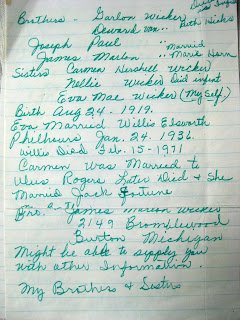 Brothers - Garlon Wicker
Deward von..
Beth Hicks
Joseph Paul
James Merlon .. Married Marie Horn
Sisters Carmen Hershell Wicker
Nellie Wicker Died infant
Eva Mae Wicker (My Self)
Birth Aug 24 - 1919.
Eva Married Willie Elsworth
Philheurs Jan. 24. 1936.
Willie Died Feb - 15 - 1971
Carmen was Married to
Rogers, Later Died & She
Married Jack Fortune
Bro. James Merlon Wicker
2149 Bromplewood
Burton Michigan
Might be able to supply you
with other Information.
My Brothers & Sisters